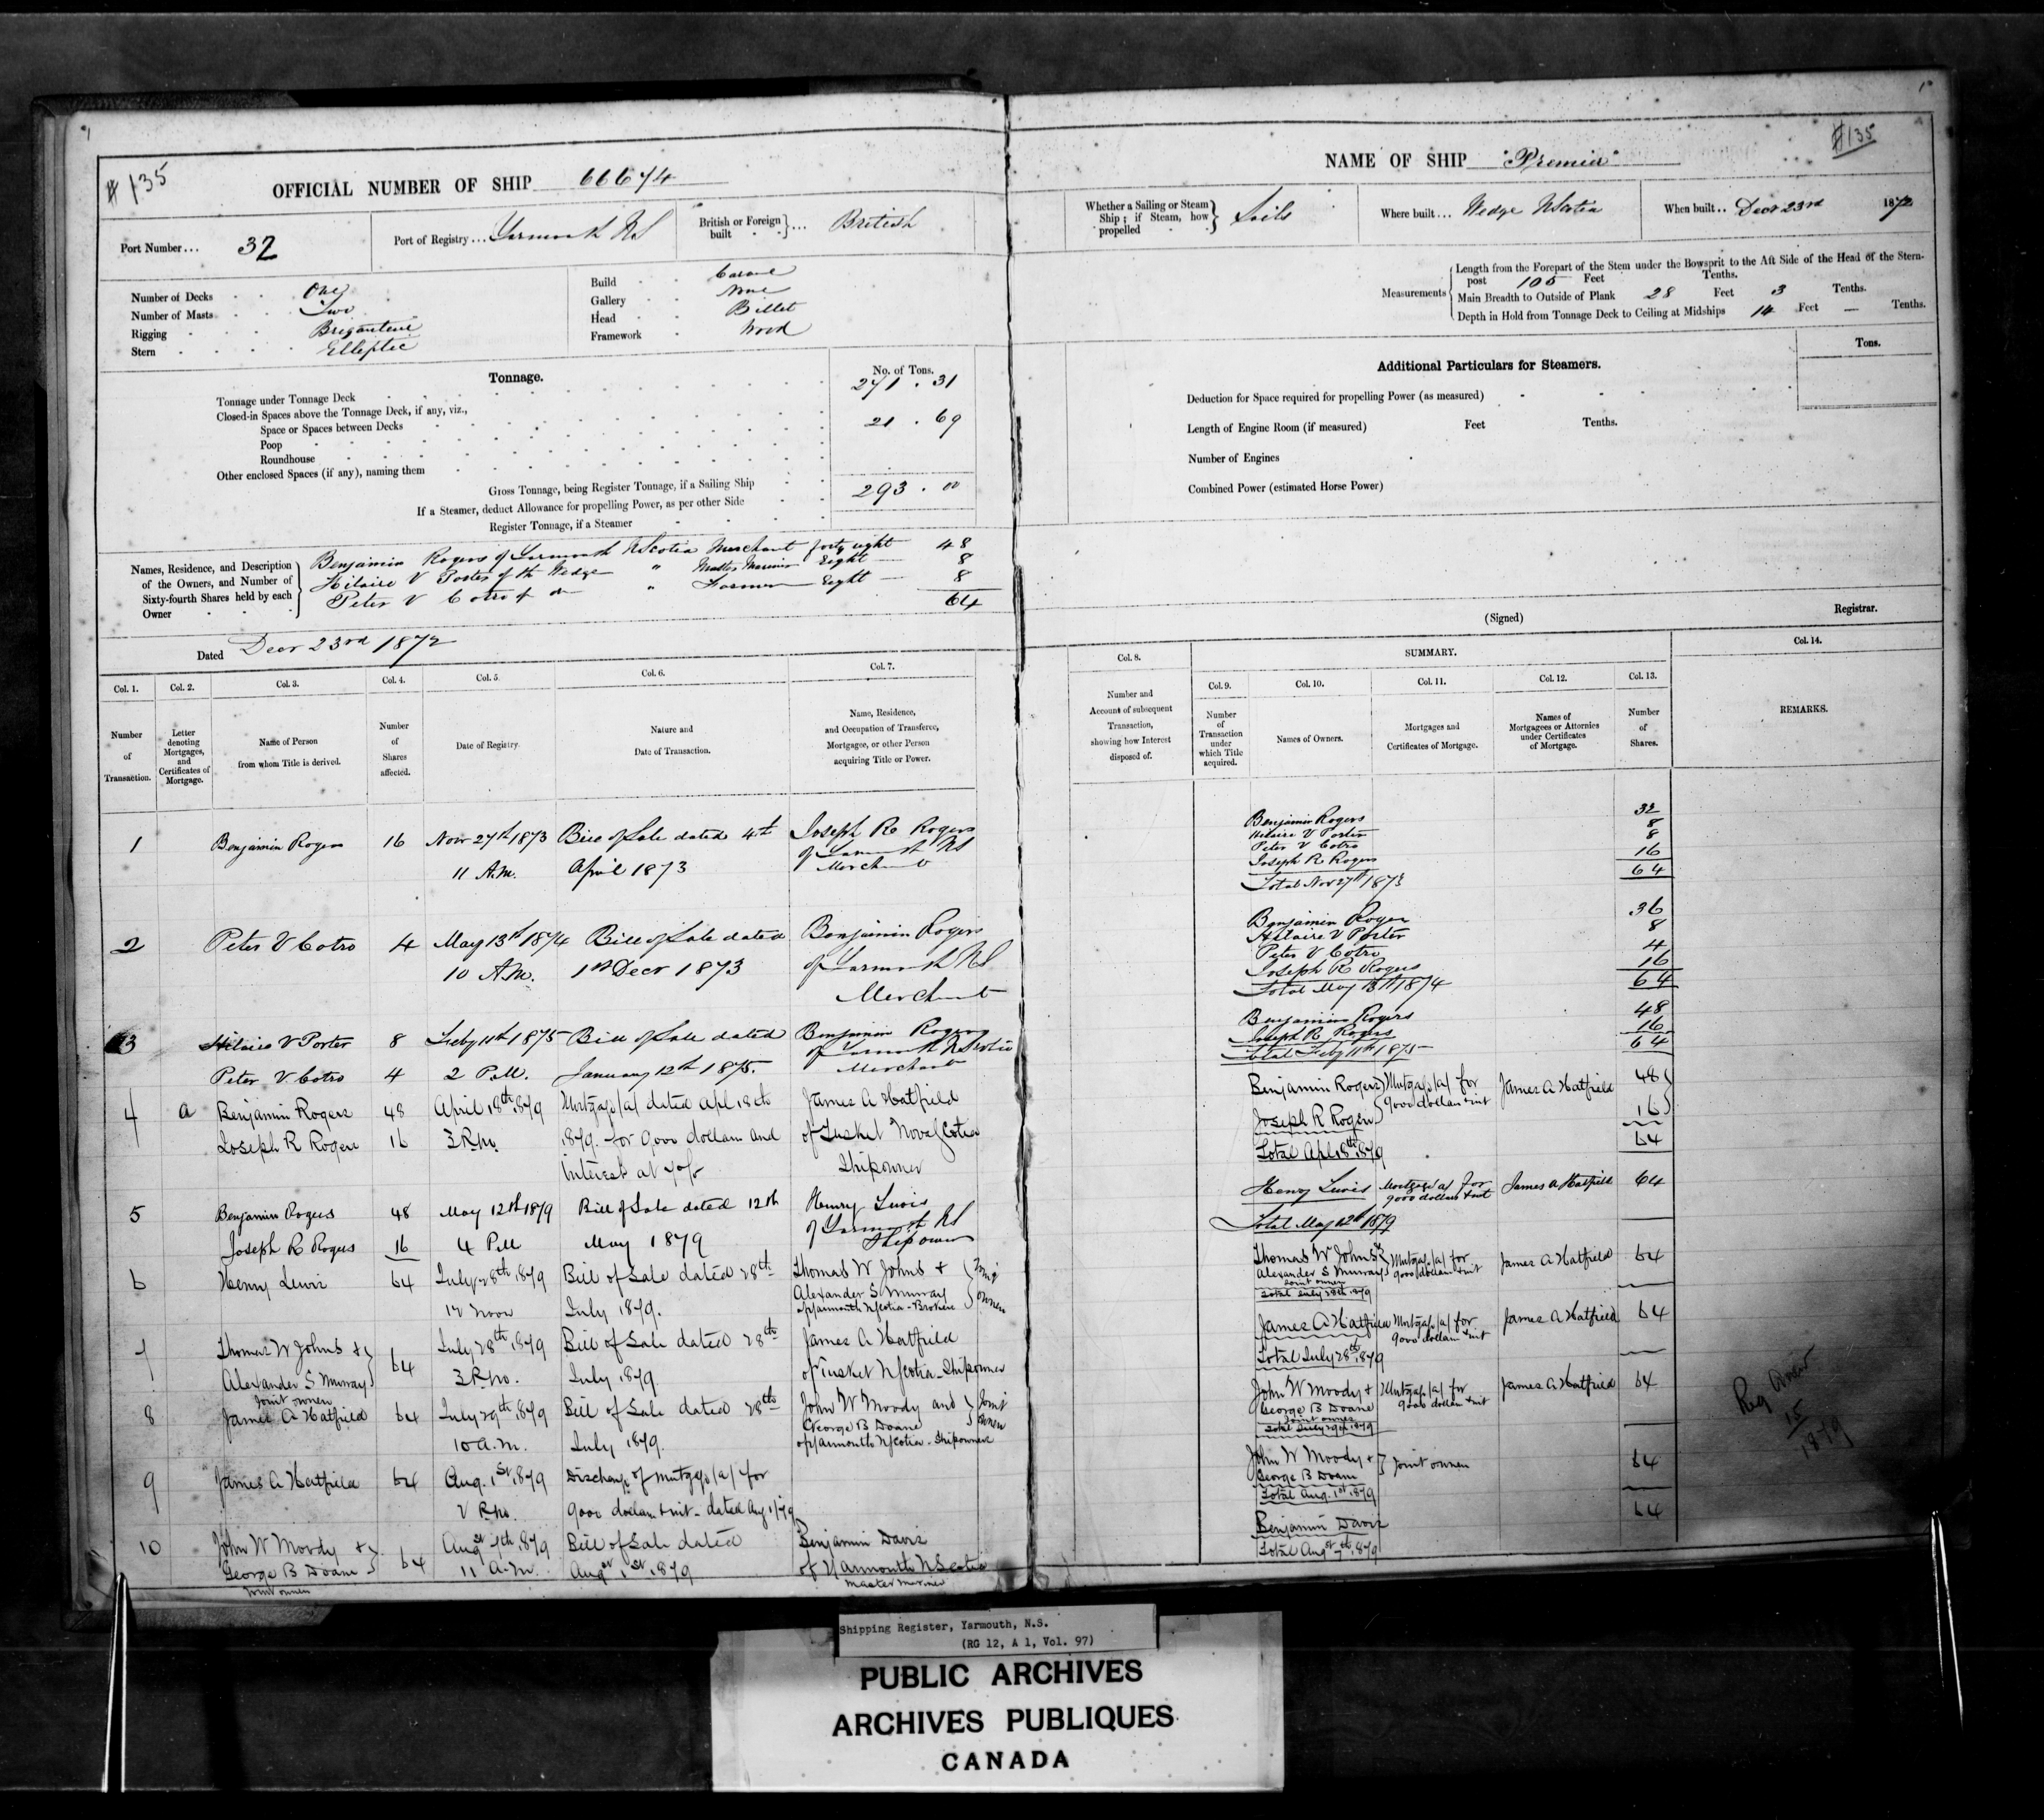 # 135
OFFICIAL NUMBER OF SHIP 66674
Port Number... 32
Port of Registry... Yarmouth NS
British or Foreign built } ... British
Number of Decks One
Number of Masts Two
Rigging Brigantine
Stern Elliptic
Build Carvel
Gallery None
Head Billet
Framework Wood
Tonnage.
No. of Tons.
Tonnage under Tonnage Deck 271 . 31
Closed-in Spaces above the Tonnage Deck, if any, viz.,
Space or Spaces between Decks 21 . 69
Poop
Roundhouse
Other enclosed Spaces (if any), naming them
Gross Tonnage, being Register Tonnage, if a Sailing Ship 293 . 00
If a Steamer, deduct Allowance for propelling Power, as per other Side
Register Tonnage, if a Steamer
Names, Residence, and Description of the Owners, and Number of Sixty-fourth Shares held by each Owner
Benjamin Rogers of Yarmouth NScotia Merchant forty eight 48
Hilaire V Porter of the Wedge " Master Mariner Eight 8
Peter V Cotro of do " Farmer Eight 8
64
Dated Decr 23rd 1872
Col. 1. Col. 2. Col. 3. Col. 4. Col. 5. Col. 6. Col. 7.
Number of Transaction.
Letter denoting Mortgages, and Certificates of Mortgage.
Name of Person from whom Title is derived.
Number of Shares affected.
Date of Registry.
Nature and Date of Transaction.
Name, Residence, and Occupation of Transferee, Mortgagee, or other Person acquiring Title or Power.
1 Benjamin Rogers 16 Novr 27th 1873 Bill of Sale dated 4th Joseph R Rogers
11 A.M. April 1873 of Yarmouth NS
Merchant
2 Peter V Cotro 4 May 13th 1874 Bill of Sale dated Benjamin Rogers
10 A.M. 1st Decr 1873 of Yarmouth NS
Merchant
3 Hilaire V Porter 8 Feby 11th 1875 Bill of Sale dated Benjamin Rogers
of Yarmouth NScotia
Peter V Cotro 4 2 P.M. January 12th 1875. Merchant
4 a Benjamin Rogers 48 April 18th 1879 Mortgage (a) dated Apl 18th James A Hatfield
Joseph R Rogers 16 3 P.m. 1879. for 9000 dollars and of Tusket Nova Scotia
interest at Shipowner
5 Benjamin Rogers 48 May 12th 1879 Bill of Sale dated 12th Henry Lewis
of Yarmouth NS
Joseph R Rogers 16 4 P.M May 1879 Shipowner
6 Henry Lewis 64 July 28th 1879 Bill of Sale dated 28th Thomas W Johns + } Joint
Alexander S Murray } owners
12 Noon July 1879. of Yarmouth NScotia - Brokers
7 Thomas W Johns + } 64 July 28th 1879 Bill of Sale dated 28th James A Hatfield
Alexander S Murray 3 P.m. July 1879. of Tusket NScotia - Shipowner
Joint owners
8 James A Hatfield 64 July 29th 1879 Bill of Sale dated 28th John W Moody and } Joint
George B Doane } owners
10 a.m. July 1879. of Yarmouth NScotia - Shipowners
9 James A Hatfield 64 Aug. 1st 1879 Discharge of mortgage (a) for
2 P.m. 9000 dollars + int - dated Aug 1/79
10 John W Moody + } 64 Augst 7th 1879 Bill of Sale dated Benjamin Davis
George B Doane 11 a.m. Augst 1st 1879 of Yarmouth NScotia
Joint owners Master Mariner
# 135
NAME OF SHIP "Premier"
Whether a Sailing or Steam Ship; if Steam, how propelled } Sails
Where built... Wedge NScotia
When built.. Decr 23rd 1872
Measurements
Length from the Forepart of the Stem under the Bowsprit to the Aft Side of the Head of the Stern-
post 105 Feet Tenths.
Main Breadth to Outside of Plank 28 Feet 3 Tenths.
Depth in Hold from Tonnage Deck to Ceiling at Midships 14 Feet — Tenths.
Additional Particulars for Steamers.
Tons.
Deduction for Space required for propelling Power (as measured)
Length of Engine Room (if measured) Feet Tenths.
Number of Engines
Combined Power (estimated Horse Power)
(Signed) Registrar.
Col. 8. SUMMARY. Col. 14.
Col. 9. Col. 10. Col. 11. Col. 12. Col. 13.
Number and Account of subsequent Transaction, showing how Interest disposed of.
Number of Transaction under which Title acquired.
Names of Owners.
Mortgages and Certificates of Mortgage.
Names of Mortgagees or Attornies under Certificates of Mortgage.
Number of Shares.
REMARKS.
Benjamin Rogers 32
Hilaire V Porter 8
Peter V Cotro 8
Joseph R Rogers 16
Total Nov 27th 1873 64
Benjamin Roger 36
Hilaire V Porter 8
Peter V Cotro 4
Joseph R Rogers 16
Total May 13th 1874 64
Benjamin Rogers 48
Joseph R Rogers 16
Total Feby 11th 1875 64
Benjamin Rogers } Mortgage (a) for James A Hatfield 48
9000 dollars + int
Joseph R Rogers 16
Total Apl 18th 1879 64
Henry Lewis Mortgage (a) for James A Hatfield 64
9000 dollars + int
Total May 12th 1879
Thomas W Johns + } Mortgage (a) for James A Hatfield 64
Alexander S Murray 9000 dollars + int
Joint owners
Total July 28th 1879
James A Hatfield Mortgage (a) for James A Hatfield 64
9000 dollars + int
Total July 28th 1879
John W Moody + Mortgage (a) for James A Hatfield 64
George B Doane 9000 dollars + int
Joint owners
Total July 29th 1879
John W Moody + } Joint owners 64
George B Doane
Total Aug. 1st 1879
Benjamin Davis 64
Total Augst 7th 1879
Reg Anew
15
1879
Shipping Register, Yarmouth, N.S.
(RG 12, A 1, Vol. 97)
PUBLIC ARCHIVES
ARCHIVES PUBLIQUES
CANADA